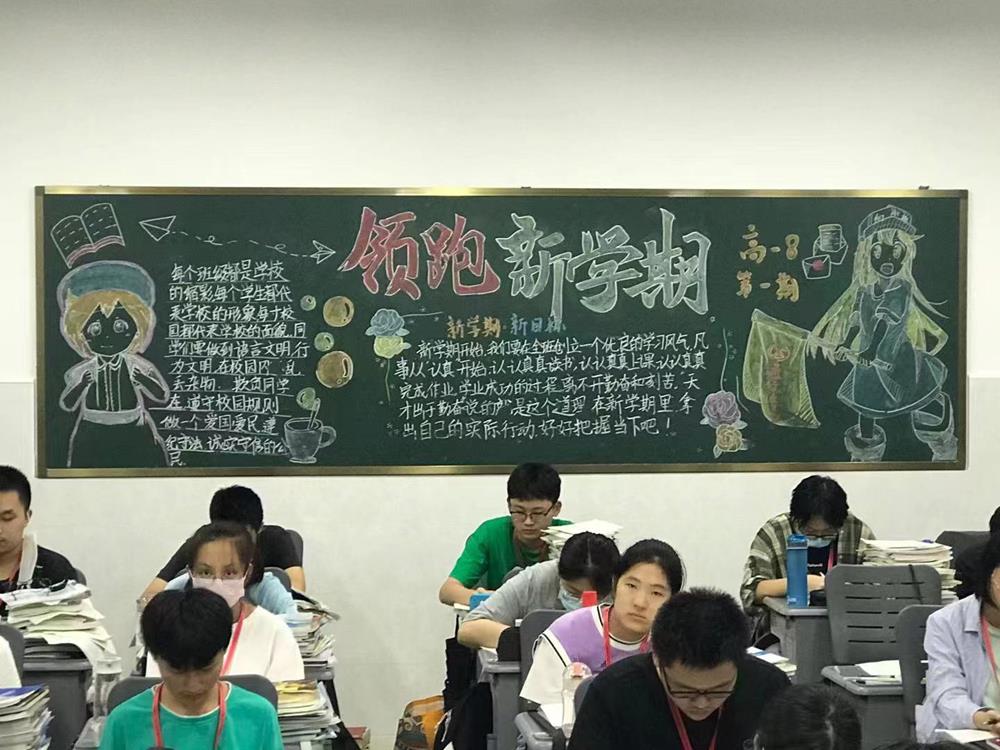 领跑新学期
高一8
第一期
每个班级都是学校
的缩影每个学生都代
表学校的形象每寸校
园都代表学校的面貌,同
学们要做到语言文明,行
为文明,在校园内
去杂物
遵守校园规则
做一个爱国爱民,遵
纪守法,诚实守信的公
民.
新学期·新目标
新学期开始,我们要在全班创立一个优良的学习风气,凡
事从“认真”开始,认认真真读书,认认真真上课,认认真真
完成作业,学业成功的过程,离不开勤奋和刻苦.“天
才出于勤奋”说的就是这个道理.在新学期里,拿
出自己的实际行动,好好把握当下吧!